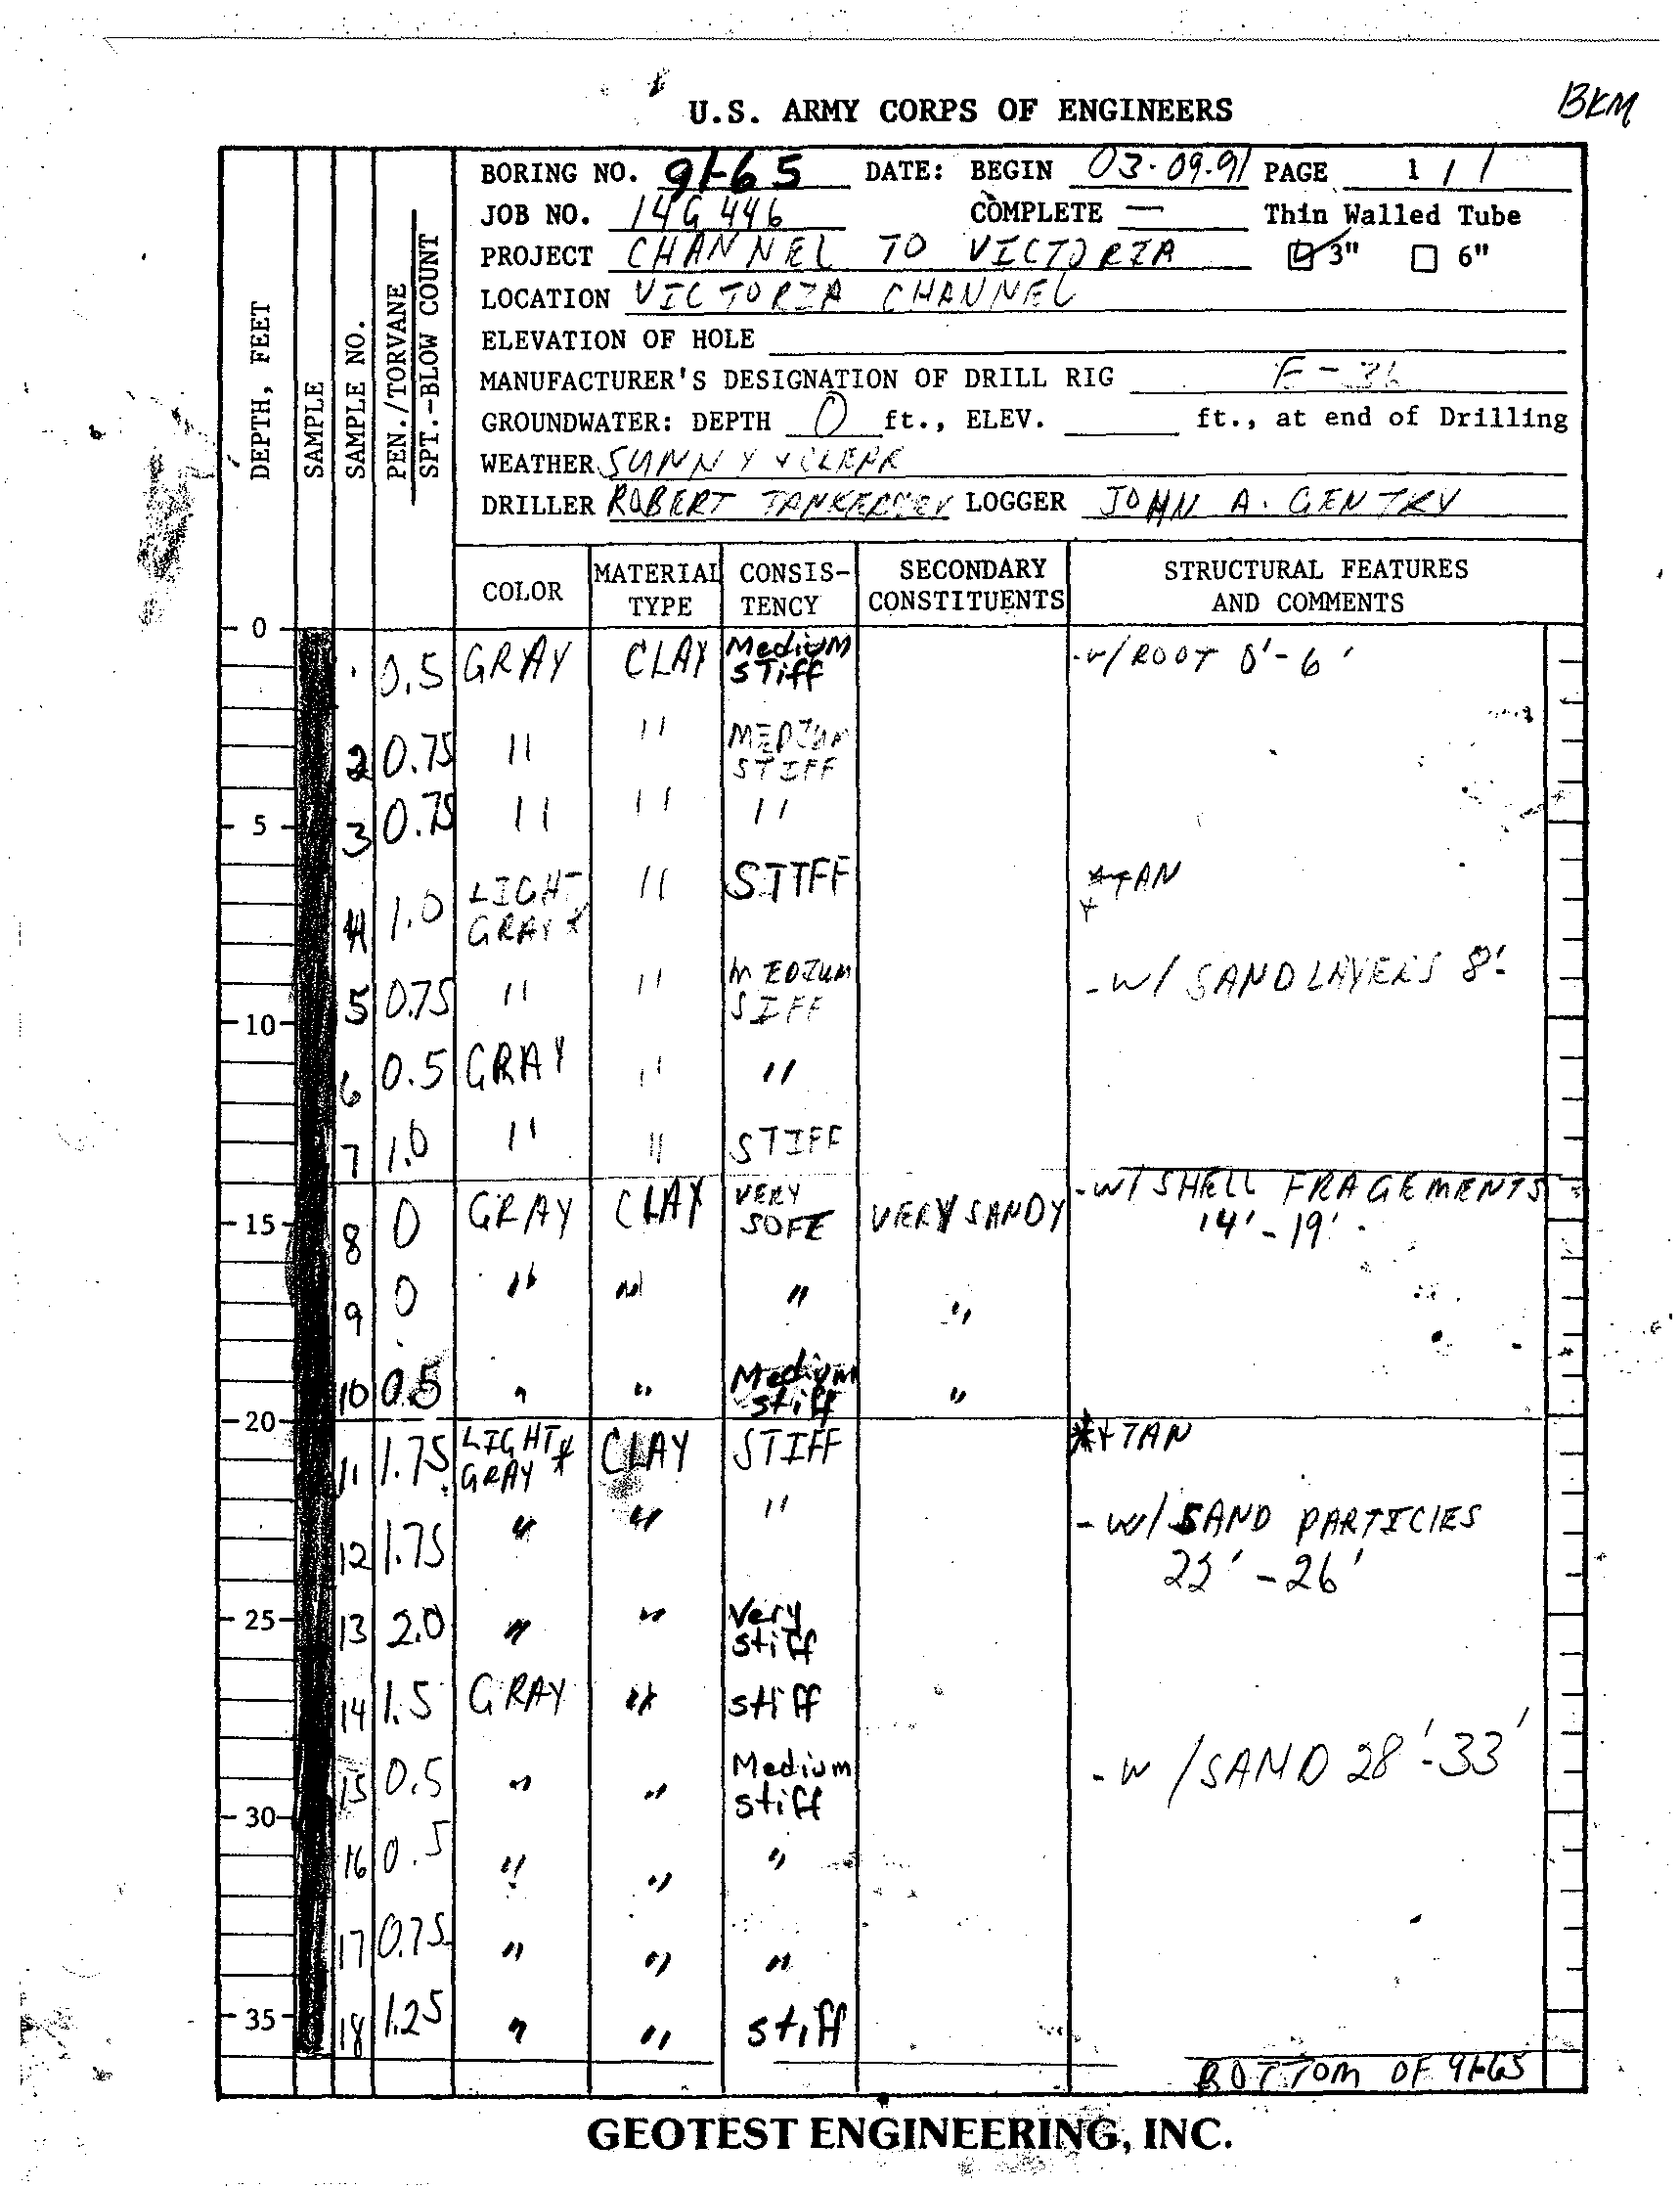 BKM
U.S. ARMY CORPS OF ENGINEERS
BORING NO. 91-65 DATE: BEGIN 03-09-91 PAGE 1 / 1
JOB NO. 14G446 COMPLETE — Thin Walled Tube
PROJECT CHANNEL TO VICTORIA 3" 6"
LOCATION VICTORIA CHANNEL
ELEVATION OF HOLE
MANUFACTURER'S DESIGNATION OF DRILL RIG
GROUNDWATER: DEPTH 0 ft., ELEV. ft., at end of Drilling
WEATHER SUNNY + CLEAR
DRILLER ROBERT LOGGER JOHN A. GENTRY
DEPTH, FEET
SAMPLE
SAMPLE NO.
PEN./TORVANE
SPT.-BLOW COUNT
COLOR MATERIAL TYPE CONSIS-TENCY SECONDARY CONSTITUENTS STRUCTURAL FEATURES AND COMMENTS
0
0.5 GRAY CLAY Medium stiff -w/ROOT 0'-6'
2 0.75 " " MEDIUM STIFF
5 3 0.75 " " "
4 1.0 LIGHT GRAY * " STIFF *+TAN
5 0.75 " " MEDIUM SIFF -W/ SAND LAYERS 8'
10
6 0.5 GRAY " "
7 1.0 " " STIFF
15 8 0 GRAY CLAY VERY SOFT VERY SANDY -W/SHELL FRAGEMENTS 14'-19'
9 0 " " " "
10 0.5 " " Medium stiff "
20
11 1.75 LIGHT GRAY * CLAY STIFF *+TAN
12 1.75 " " " -W/SAND PARTICLES 22'-26'
25 13 2.0 " " Very stiff
14 1.5 GRAY " stiff
15 0.5 " " Medium stiff -W/SAND 28'-33'
30
16 0.5 " " "
17 0.75 " " "
35 18 1.25 " " stiff
BOTTOM OF 91-65
GEOTEST ENGINEERING, INC.